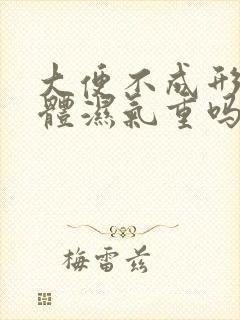 大便不成形
體濕氣重吗
梅雷兹